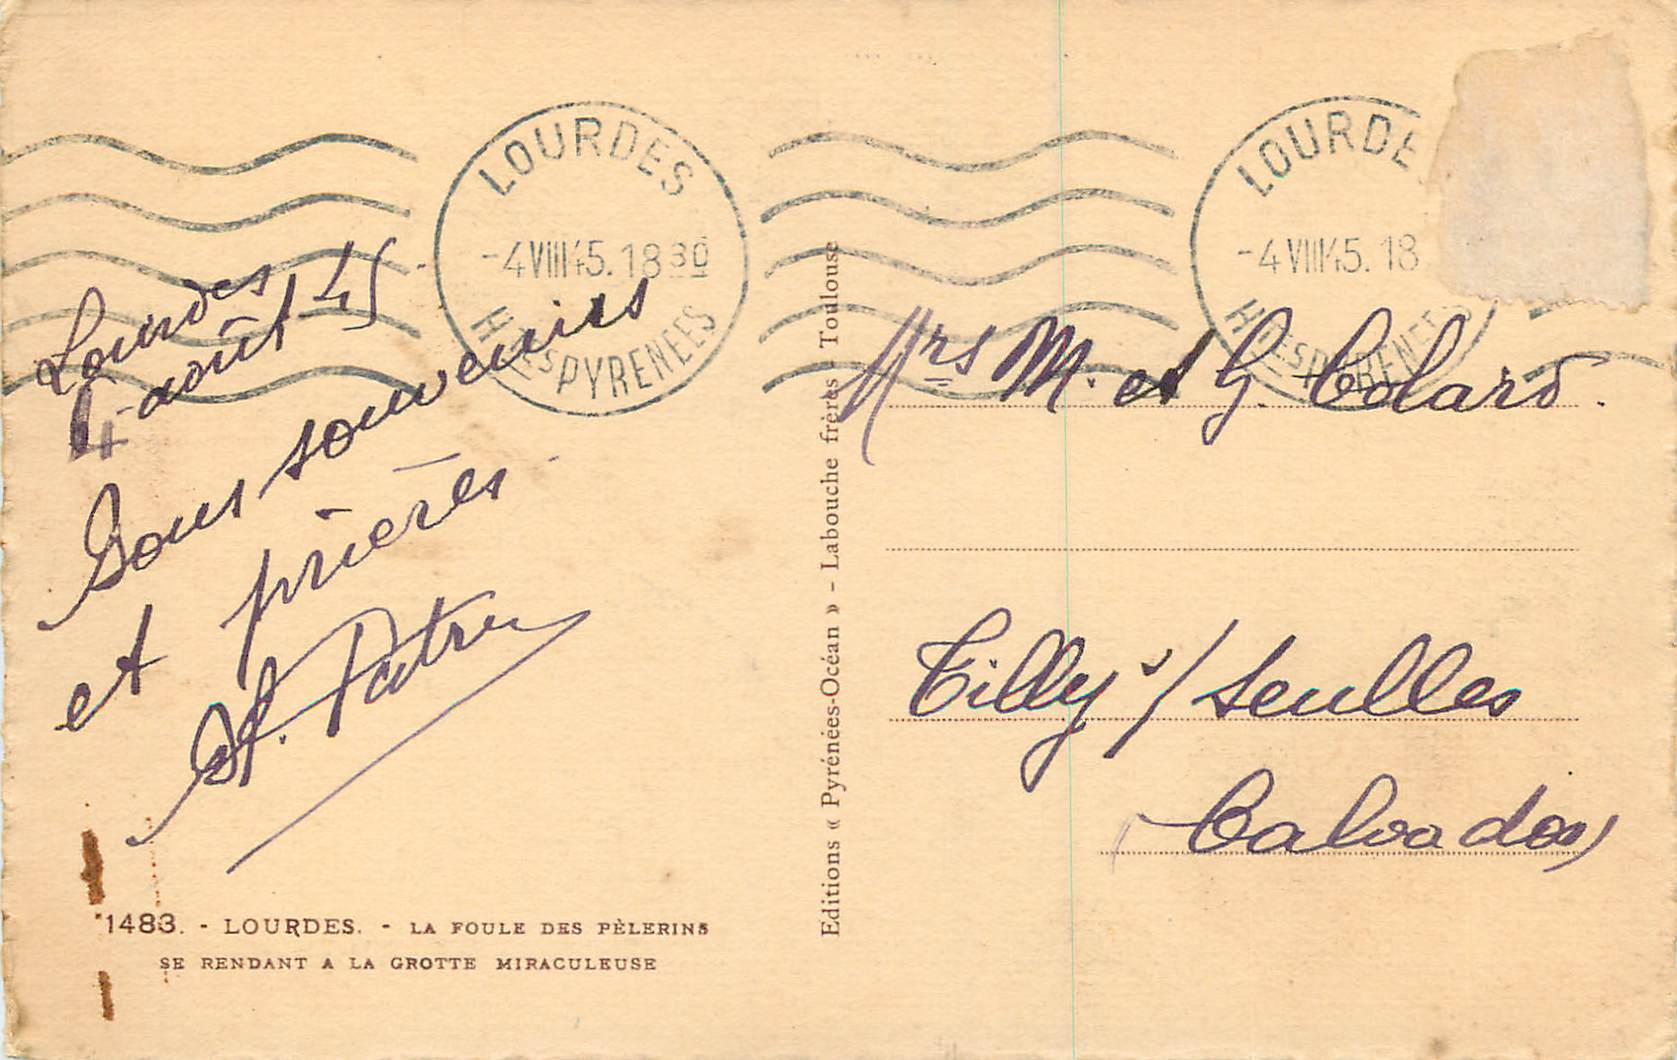 LOURDES
-4 VIII 45. 18 30
HTES PYRENEES
LOURDE
-4 VIII 45. 18
HTES PYRENEES
Lourdes
4 août 45
Bons souvenirs
et prières
Editions « Pyrénées-Océan » - Labouche frères - Toulouse
Mrs M. et G. Colard.
Tilly s/ Seulles
Calvados
1483. - LOURDES. - LA FOULE DES PÈLERINS
SE RENDANT A LA GROTTE MIRACULEUSE